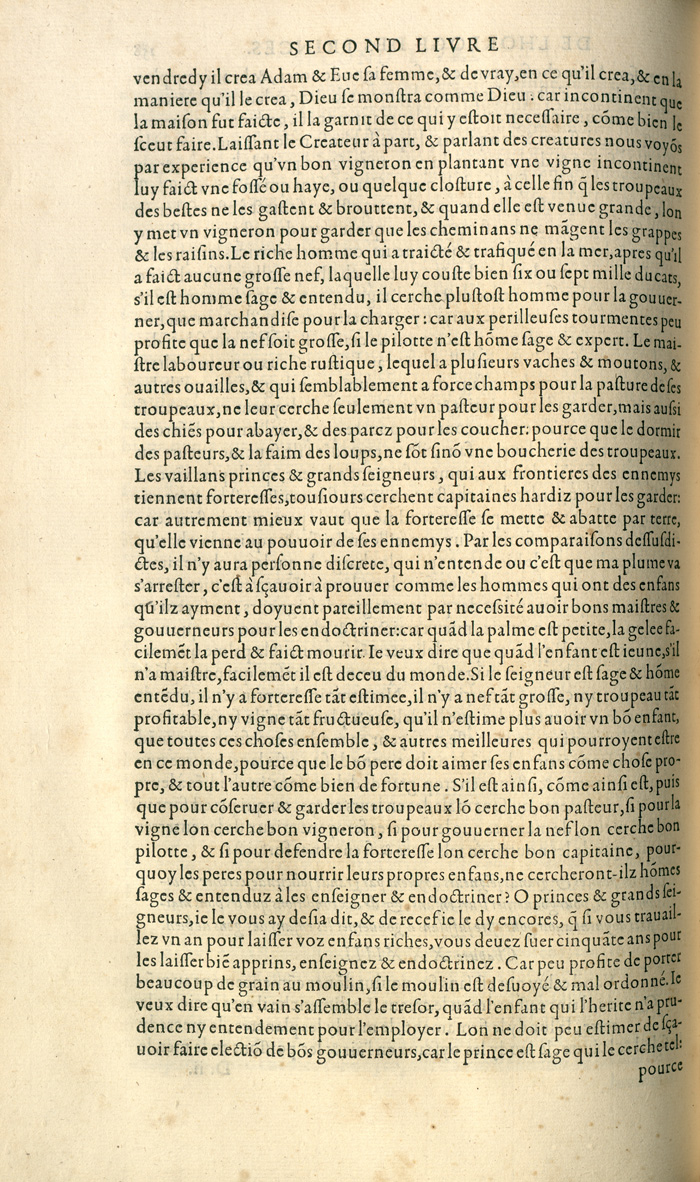 SECOND LIVRE
vendredy il crea Adam & Eue ſa femme, & de vray, en ce qu'il crea, & en la
maniere qu'il le crea, Dieu ſe monſtra comme Dieu : car incontinent que
la maiſon fut faicte, il la garnit de ce qui y eſtoit neceſſaire, cõme bien le
ſceut faire. Laiſſant le Createur à part, & parlant des creatures nous voyõs
par experience qu'vn bon vigneron en plantant vne vigne incontinent
luy faict vne foſſé ou haye, ou quelque cloſture, à celle fin q̃ les troupeaux
des beſtes ne les gaſtent & brouttent, & quand elle eſt venue grande, lon
y met vn vigneron pour garder que les cheminans ne mãgent les grappes
& les raiſins. Le riche homme qui a traicté & trafiqué en la mer, apres qu'il
a faict aucune groſſe nef, laquelle luy couſte bien ſix ou ſept mille ducats,
s'il eſt homme ſage & entendu, il cerche pluſtoſt homme pour la gouuer-
ner, que marchandiſe pour la charger : car aux perilleuſes tourmentes peu
profite que la nef ſoit groſſe, ſi le pilotte n'eſt hõme ſage & expert. Le mai-
ſtre laboureur ou riche ruſtique, lequel a pluſieurs vaches & moutons, &
autres ouailles, & qui ſemblablement a force champs pour la paſture de ſes
troupeaux, ne leur cerche ſeulement vn paſteur pour les garder, mais auſsi
des chiẽs pour abayer, & des parcz pour les coucher: pource que le dormir
des paſteurs, & la faim des loups, ne ſõt ſinõ vne boucherie des troupeaux.
Les vaillans princes & grands ſeigneurs, qui aux frontieres des ennemys
tiennent fortereſſes, touſiours cerchent capitaines hardiz pour les garder:
car autrement mieux vaut que la fortereſſe ſe mette & abatte par terre,
qu'elle vienne au pouuoir de ſes ennemys. Par les comparaiſons deſſuſdi-
ctes, il n'y aura perſonne diſcrete, qui n'entende ou c'eſt que ma plume va
s'arreſter, c'eſt à ſçauoir à prouuer comme les hommes qui ont des enfans
qu'ilz ayment, doyuent pareillement par neceſsité auoir bons maiſtres &
gouuerneurs pour les endoctriner: car quãd la palme eſt petite, la gelee fa-
cilemẽt la perd & faict mourir. Ie veux dire que quãd l'enfant eſt ieune, s'il
n'a maiſtre, facilemẽt il eſt deceu du monde. Si le ſeigneur eſt ſage & hõme
entẽdu, il n'y a fortereſſe tãt eſtimee, il n'y a nef tãt groſſe, ny troupeau tãt
profitable, ny vigne tãt fructueuſe, qu'il n'eſtime plus auoir vn bõ enfant,
que toutes ces choſes enſemble, & autres meilleures qui pourroyent eſtre
en ce monde, pource que le bõ pere doit aimer ſes enfans cõme choſe pro-
pre, & tout l'autre cõme bien de fortune. S'il eſt ainſi, cõme ainſi eſt, puis
que pour cõſeruer & garder les troupeaux lõ cerche bon paſteur, ſi pour la
vigne lon cerche bon vigneron, ſi pour gouuerner la nef lon cerche bon
pilotte, & ſi pour defendre la fortereſſe lon cerche bon capitaine, pour-
quoy les peres pour nourrir leurs propres enfans, ne cercheront-ilz hõmes
ſages & entenduz à les enſeigner & endoctriner? O princes & grands ſei-
gneurs, ie le vous ay deſia dit, & de recef ie le dy encores, q̃ ſi vous trauail-
lez vn an pour laiſſer voz enfans riches, vous deuez ſuer cinquãte ans pour
les laiſſer biẽ apprins, enſeignez & endoctrinez. Car peu profite de porter
beaucoup de grain au moulin, ſi le moulin eſt deſuoyé & mal ordonné. Ie
veux dire qu'en vain s'aſſemble le treſor, quãd l'enfant qui l'herite n'a pru-
dence ny entendement pour l'employer. Lon ne doit peu eſtimer de ſça-
uoir faire electiõ de bõs gouuerneurs, car le prince eſt ſage qui le cerche tel:
pource